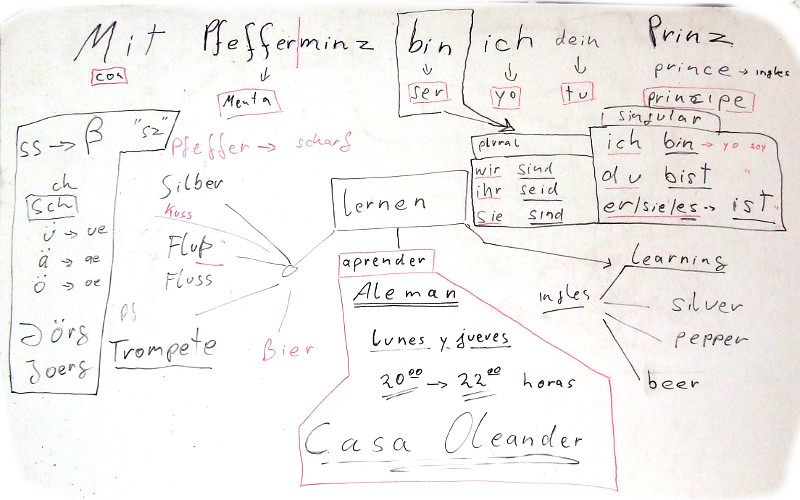 Mit Pfefferminz bin ich dein Prinz
con
Menta
ser
yo
tu
prince → ingles
principe
ss → β "sz"
ch
sch
ü → ue
ä → ae
ö → oe
Jörg
Joerg
Pfeffer → scharf
Silber
Kuss
Fluß
Fluss
Pf
Trompete
Bier
lernen
aprender
Aleman
Lunes y jueves
20⁰⁰ → 22⁰⁰ horas
Casa Oleander
plural
wir sind
ihr seid
sie sind
singular
ich bin → yo soy
du bist "
er/sie/es → ist "
learning
ingles
silver
pepper
beer